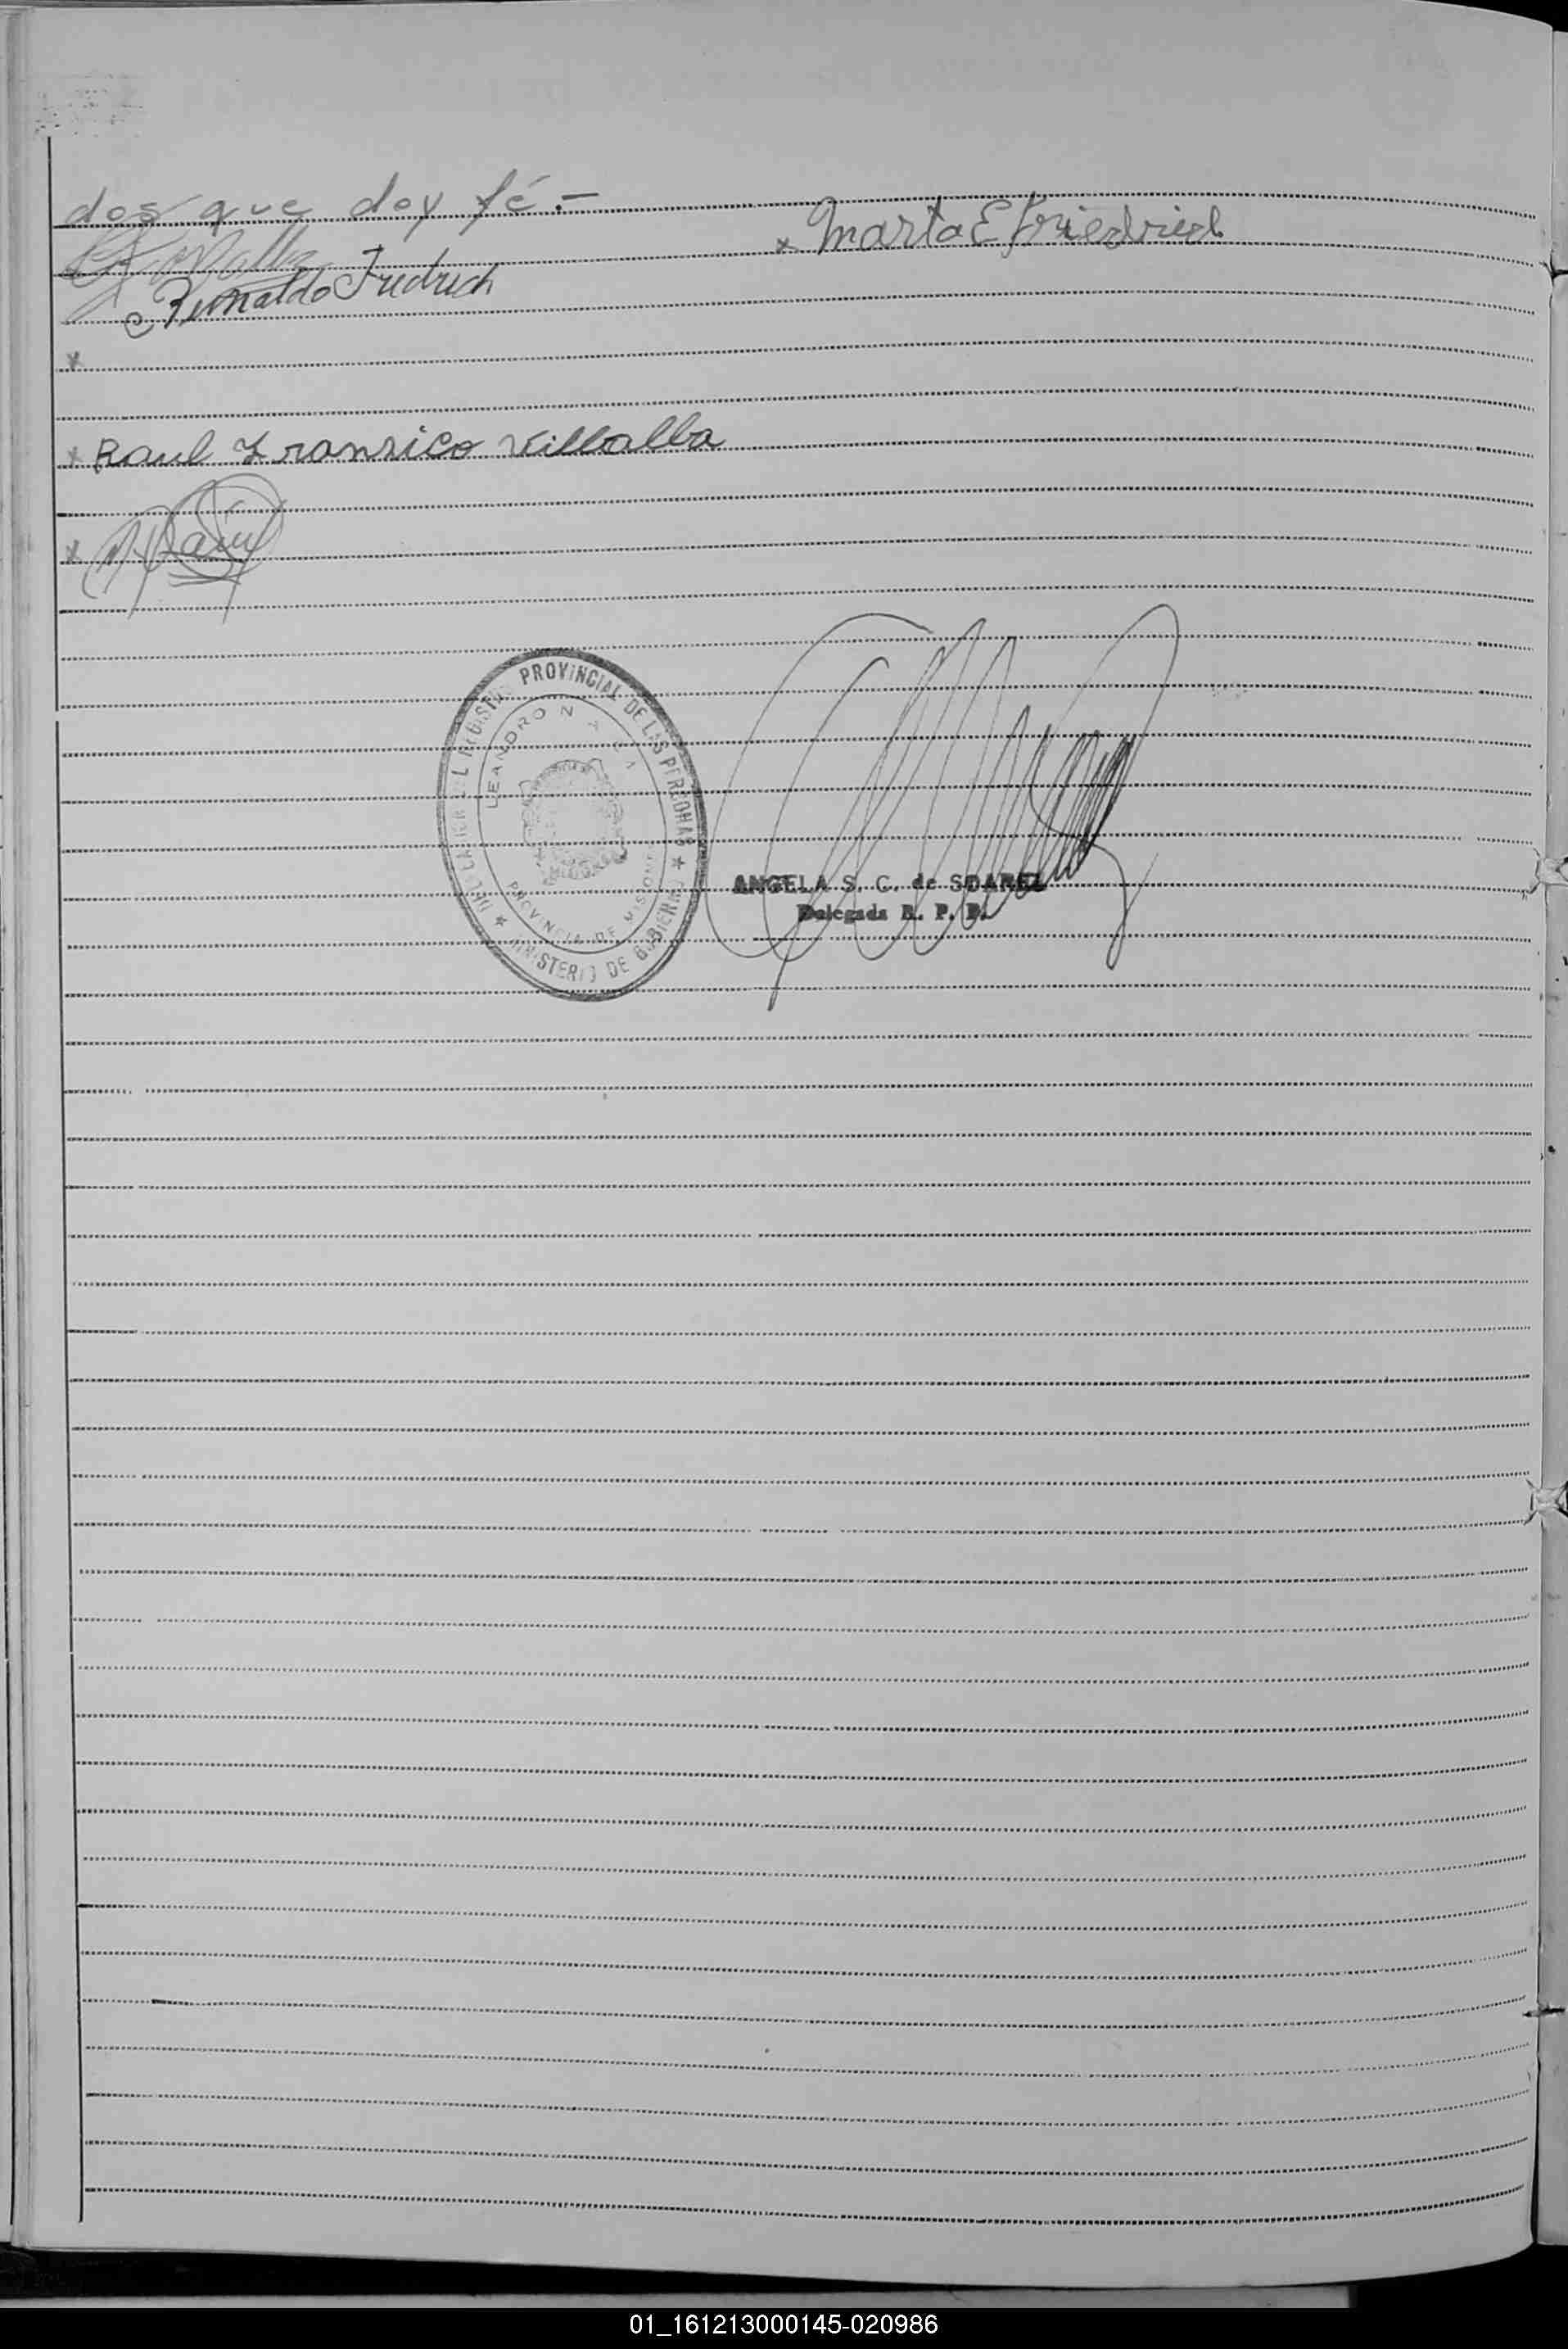 dos que doy fé.-
x Marta E Friedrich
Reinaldo Fredrich
x
x Raul Fransico Villalba
x
DEL REGISTRO PROVINCIAL DE LAS PERSONAS
LEANDRO N
PROVINCIA DE MISIONES
MINISTERIO DE GOBIERNO
ANGELA S. C. de SOAREZ
Delegada R. P. P.
01_161213000145-020986